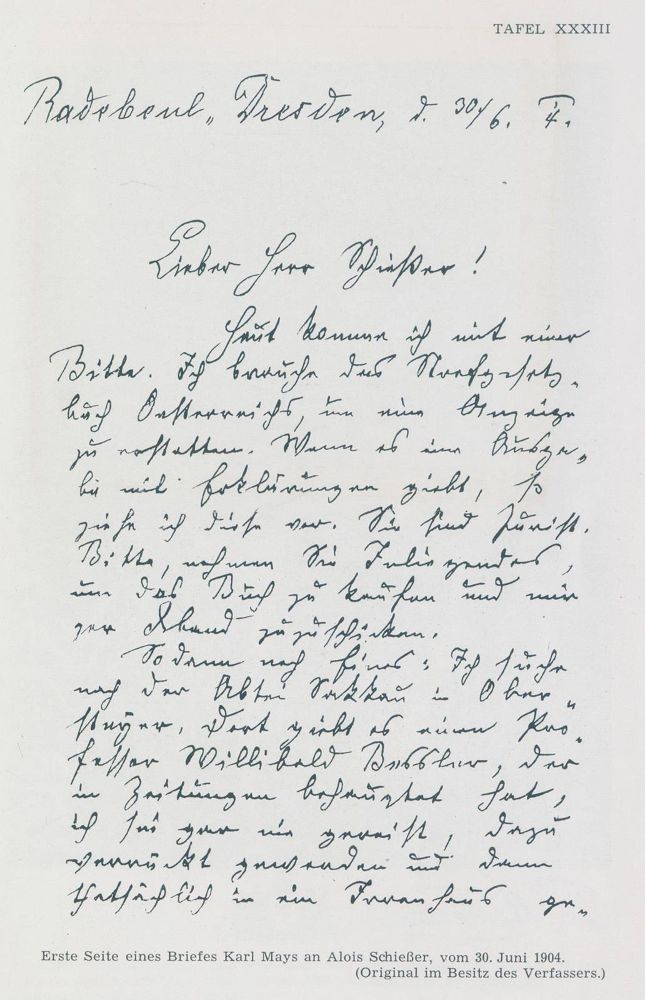 TAFEL XXXIII
Radebeul-Dresden, d. 30/6. 4.
Lieber Herr Schießer!
Heut komme ich mit einer
Bitte. Ich brauche das Strafgesetz-
buch Oesterreichs, um eine Anzeige
zu erstatten. Wenn es eine Ausga-
be mit Erklärungen giebt, so
ziehe ich diese vor. Sie sind Jurist.
Bitte, nehmen Sie Inliegendes,
um das Buch zu kaufen und mir
per Xband zuzuschicken.
Sodann noch Eines: Ich suche
nach der Abtei Sekkau in Ober-
steyer. Dort giebt es einen Pro-
fessor Willibald Bessler, der
in Zeitungen behauptet hat,
ich sei gar nie gereist, dazu
verrückt geworden und dann
thatsächlich in ein Irrenhaus ge-
Erste Seite eines Briefes Karl Mays an Alois Schießer, vom 30. Juni 1904.
(Original im Besitz des Verfassers.)